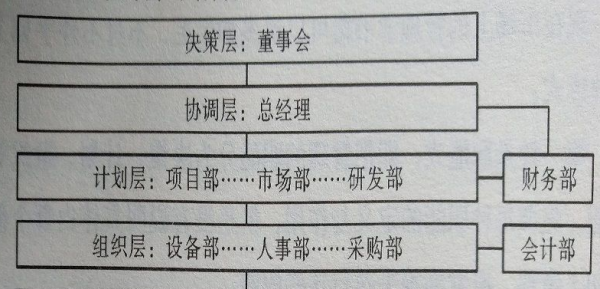 决策层：董事会
协调层：总经理
计划层：项目部……市场部……研发部
财务部
组织层：设备部……人事部……采购部
会计部